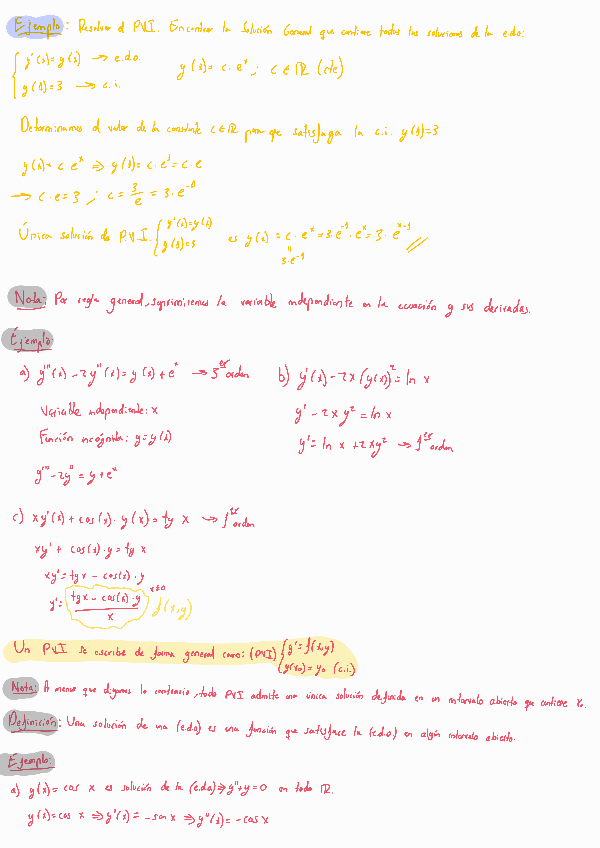 Ejemplo: Resolver el PVI. Encontrar la Solución General que contiene todas las soluciones de la edo:
{ y'(x)=y(x) → e.d.o.
y(1)=3 → c.i.
y(x)=c·eˣ; c∈ℝ (cte)
Determinamos el valor de la constante c∈ℝ para que satisfaga la c.i. y(1)=3
y(x)=c·eˣ ⇒ y(1)=c·e¹=c·e
→ c·e=3 ; c=3/e=3·e⁻¹
Única solución de P.V.I. { y'(x)=y(x) y(1)=3 es y(x)=c·eˣ=3·e⁻¹·eˣ=3·eˣ⁻¹
3·e⁻¹
Nota: Por regla general, suprimiremos la variable independiente en la ecuación y sus derivadas.
Ejemplo:
a) y'''(x)-2y''(x)=y(x)+eˣ → 3er orden
Variable independiente: x
Función incógnita: y=y(x)
y'''-2y''=y+eˣ
b) y'(x)-2x(y(x))²=ln x
y'-2xy²=ln x
y'=ln x+2xy² → 1er orden
c) xy'(x)+cos(x)·y(x)=tg x → 1er orden
xy'+cos(x)·y=tg x
xy'=tgx-cos(x)·y
y'=(tgx-cos(x)·y)/x x≠0 f(x,y)
Un PVI se escribe de forma general como: (PVI) { y'=f(x,y)
y(x₀)=y₀ (c.i.)
Nota: A menos que digamos lo contrario, todo PVI admite una única solución definida en un intervalo abierto que contiene x₀.
Definición: Una solución de una (e.d.o) es una función que satisface la (e.d.o) en algún intervalo abierto.
Ejemplo:
a) y(x)=cos x es solución de la (e.d.o)⇒y''+y=0 en todo ℝ.
y(x)=cos x ⇒y'(x)=-sen x ⇒y''(x)=-cos x